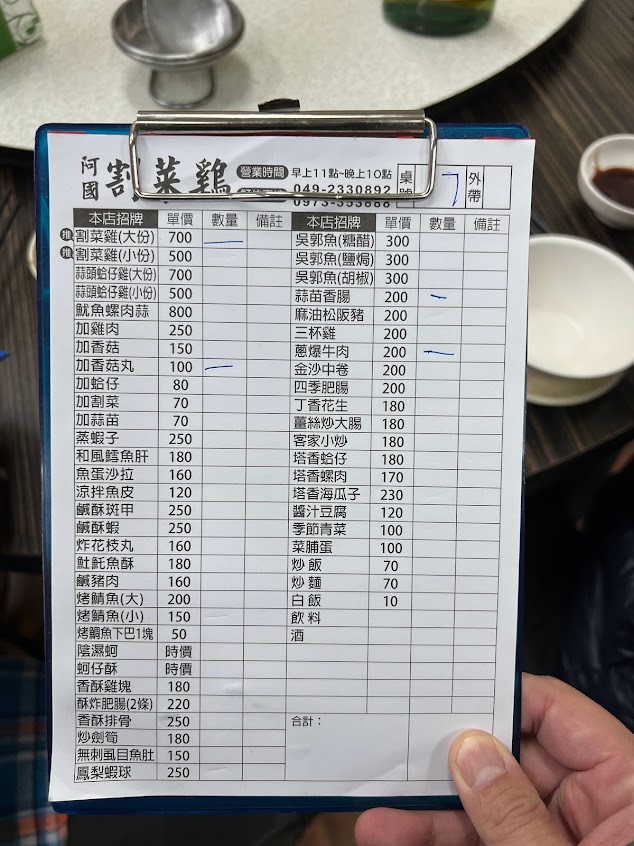 阿國割菜鷄 營業時間 早上11點~晚上10點 桌號 7 外帶
049-2330892
0973-393888
本店招牌 單價 數量 備註
推 割菜雞(大份) 700 一
推 割菜雞(小份) 500
蒜頭蛤仔雞(大份) 700
蒜頭蛤仔雞(小份) 500
魷魚螺肉蒜 800
加雞肉 250
加香菇 150
加香菇丸 100 一
加蛤仔 80
加割菜 70
加蒜苗 70
蒸蝦子 250
和風鱈魚肝 180
魚蛋沙拉 160
涼拌魚皮 120
鹹酥斑甲 250
鹹酥蝦 250
炸花枝丸 160
魠魠魚酥 180
鹹豬肉 160
烤鯖魚(大) 200
烤鯖魚(小) 150
烤鯛魚下巴1塊 50
陰濕蚵 時價
蚵仔酥 時價
香酥雞塊 180
酥炸肥腸(2條) 220
香酥排骨 250
炒劍筍 180
無刺虱目魚肚 150
鳳梨蝦球 250
本店招牌 單價 數量 備註
吳郭魚(糖醋) 300
吳郭魚(鹽焗) 300
吳郭魚(胡椒) 300
蒜苗香腸 200 一
麻油松阪豬 200
三杯雞 200
蔥爆牛肉 200 一
金沙中卷 200
四季肥腸 200
丁香花生 180
薑絲炒大腸 180
客家小炒 180
塔香蛤仔 180
塔香螺肉 170
塔香海瓜子 230
醬汁豆腐 120
季節青菜 100
菜脯蛋 100
炒飯 70
炒麵 70
白飯 10
飲料
酒
合計：